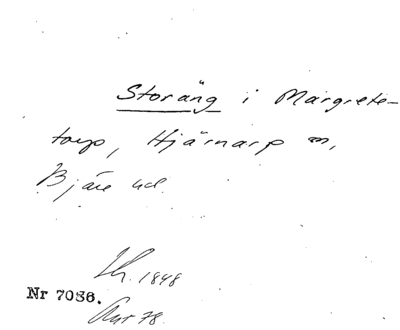 Storäng i Margrete-
torp, Hjärnarp sn,
Bjäre hd.
Lh. 1848
Nr 7086.
Avt 78.